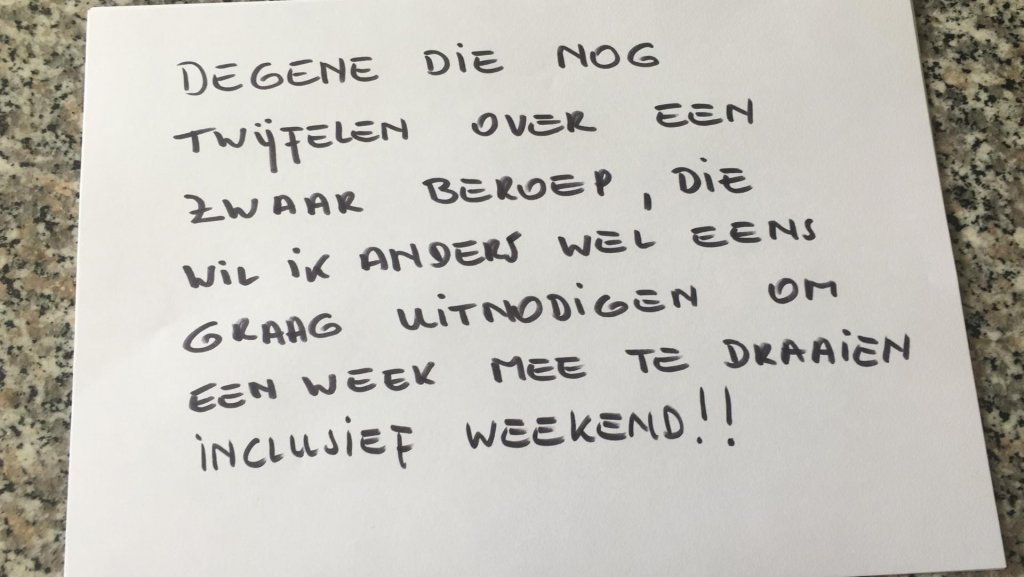 DEGENE DIE NOG
TWIJFELEN OVER EEN
ZWAAR BEROEP, DIE
WIL IK ANDERS WEL EENS
GRAAG UITNODIGEN OM
EEN WEEK MEE TE DRAAIEN
INCLUSIEF WEEKEND!!